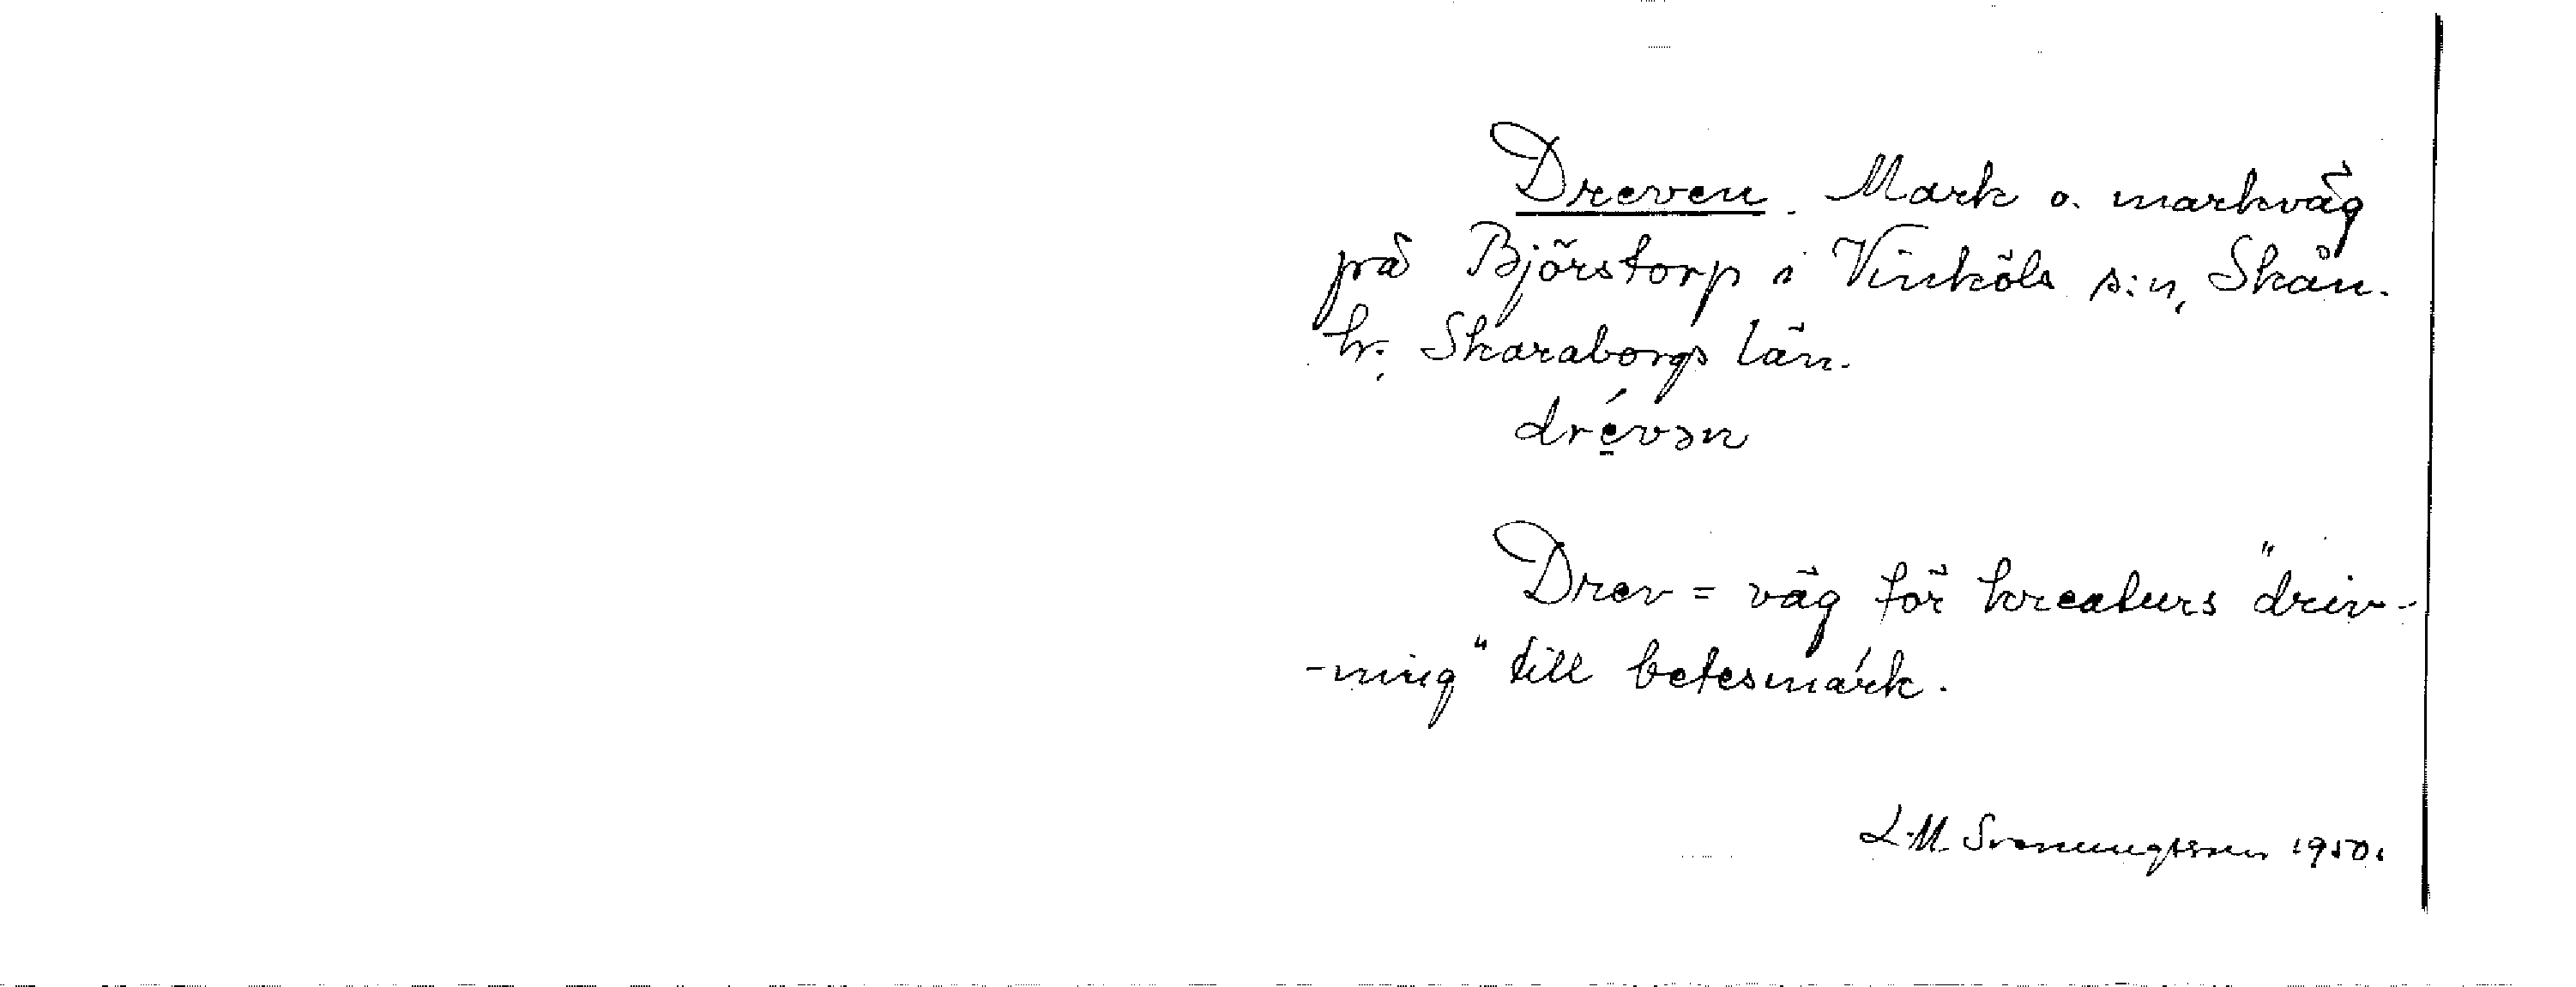 Dreven. Mark o. markväg
på Björstorp i Vinköls s:n, Skån.
hr. Skaraborgs län.
drévən
Drev = väg för kreaturs "driv-
-ning" till betesmark.
L. M. Svenungsson 1950.